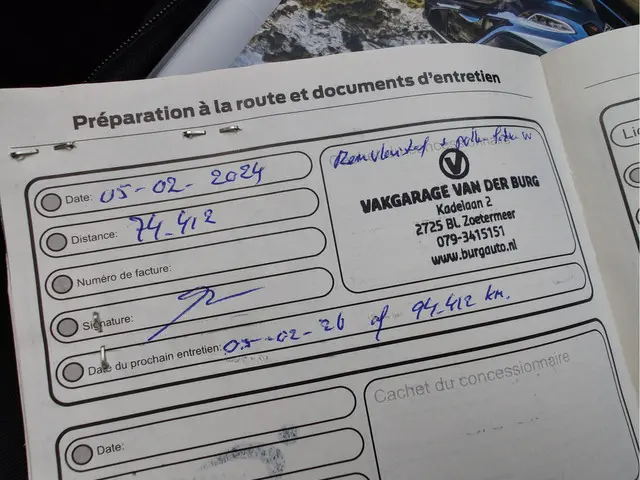 Préparation à la route et documents d'entretien
Date: 05-02-2024
Remvloeistof + pollenfilter
Distance: 74.412
VAKGARAGE VAN DER BURG
Kadelaan 2
2725 BL Zoetermeer
079-3415151
www.burgauto.nl
Numéro de facture:
Signature:
Date du prochain entretien: 05-02-26 of 94.412 km.
Date:
Cachet du concessionnaire